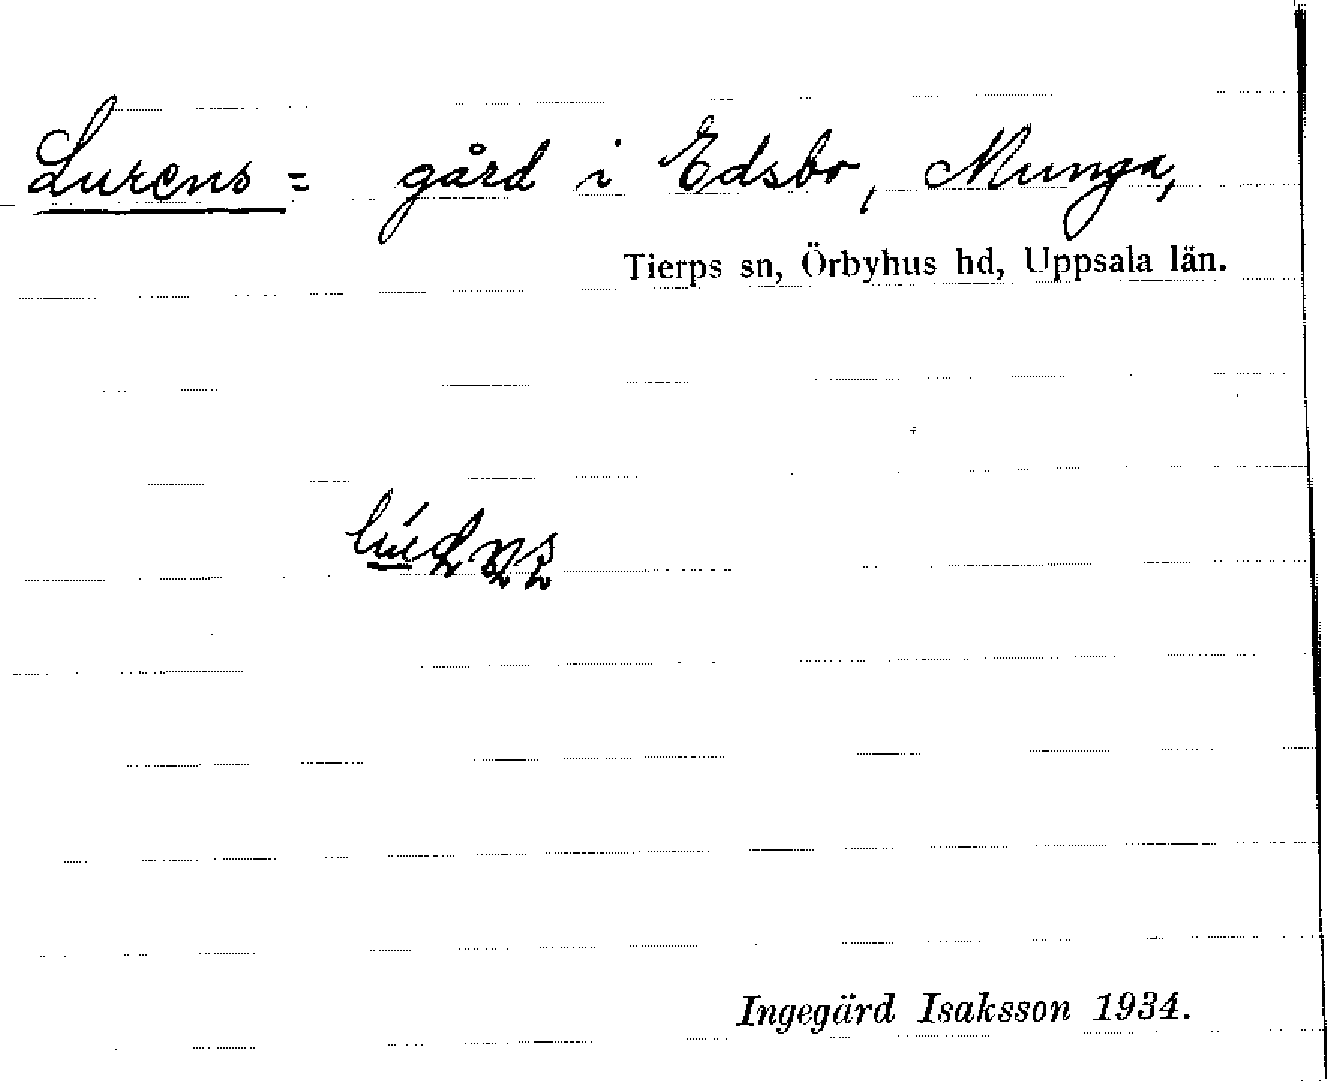 Lurens = gård i Edsbo, Munga,
Tierps sn, Örbyhus hd, Uppsala län.
Ingegärd Isaksson 1934.